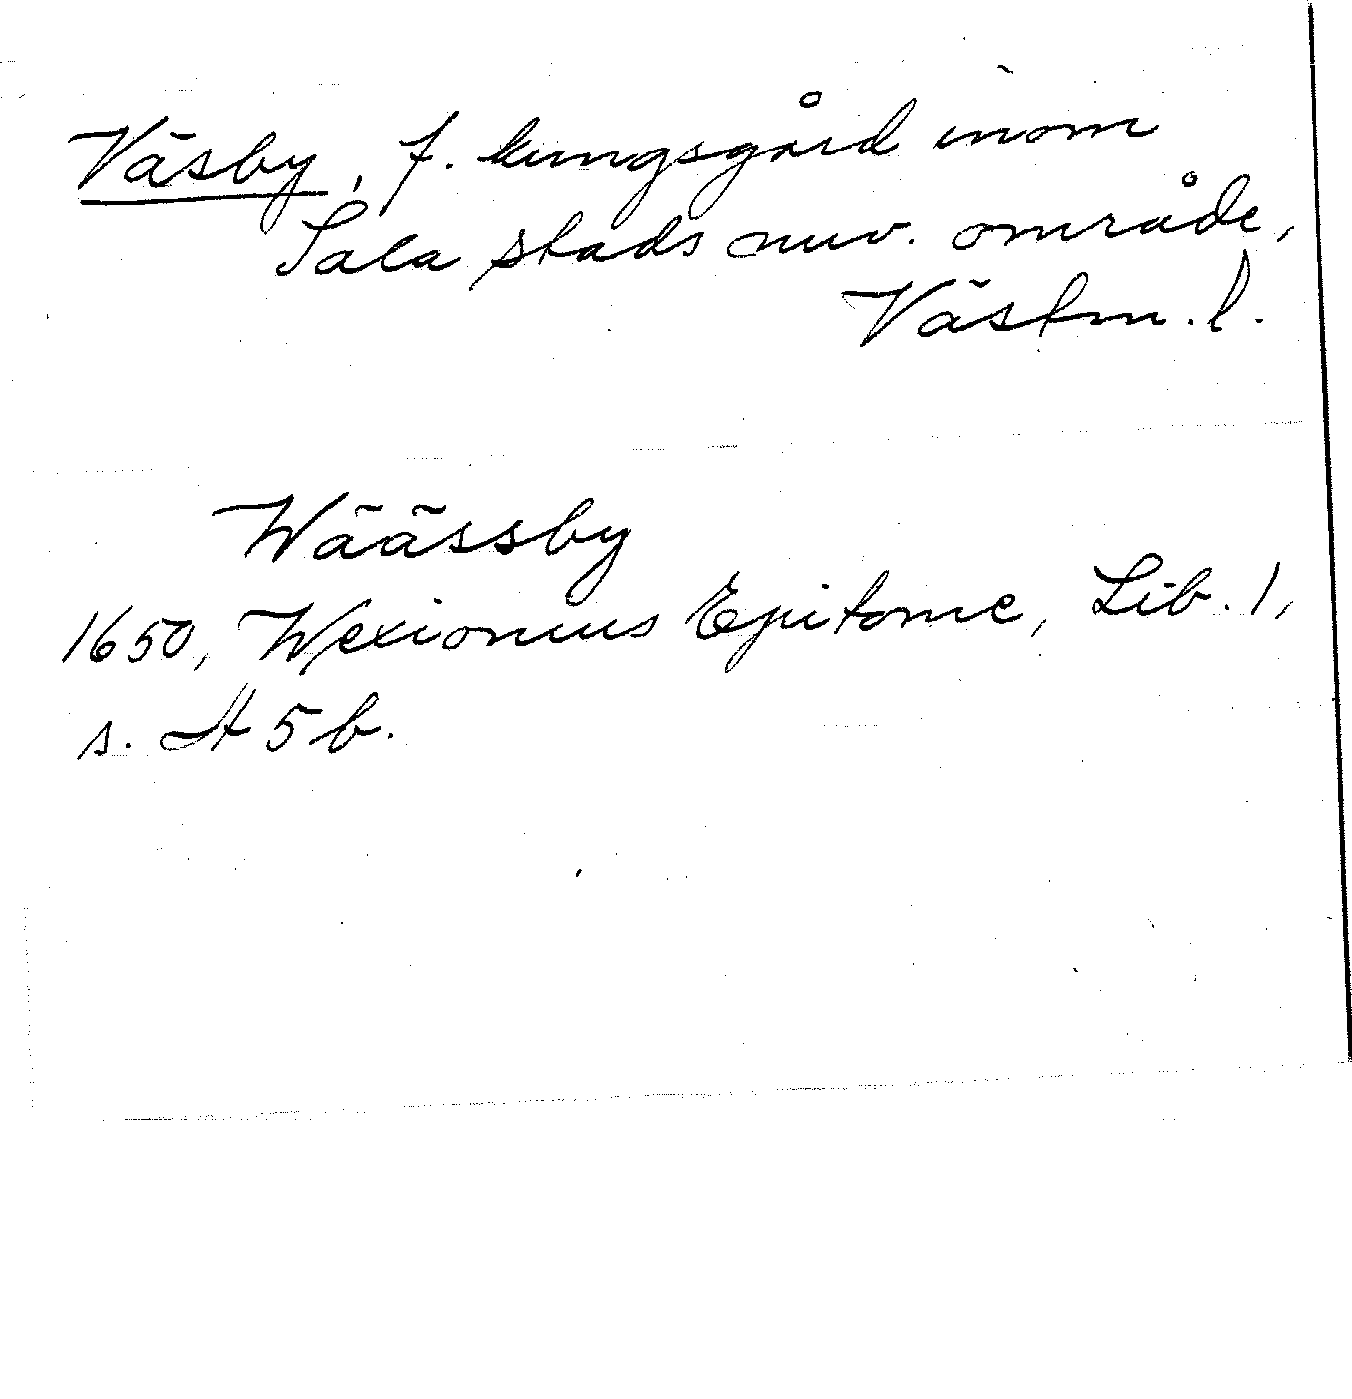 Väsby, f. kungsgård inom
Sala stads nuv. område,
Västm. l.
Wäässby
1650, Wexionius Epitome, Lib. 1,
s. A 5 b.